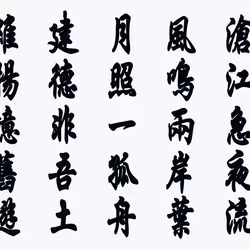 滄江急夜流
風鳴兩岸葉
月照一孤舟
建德非吾土
維揚憶舊遊